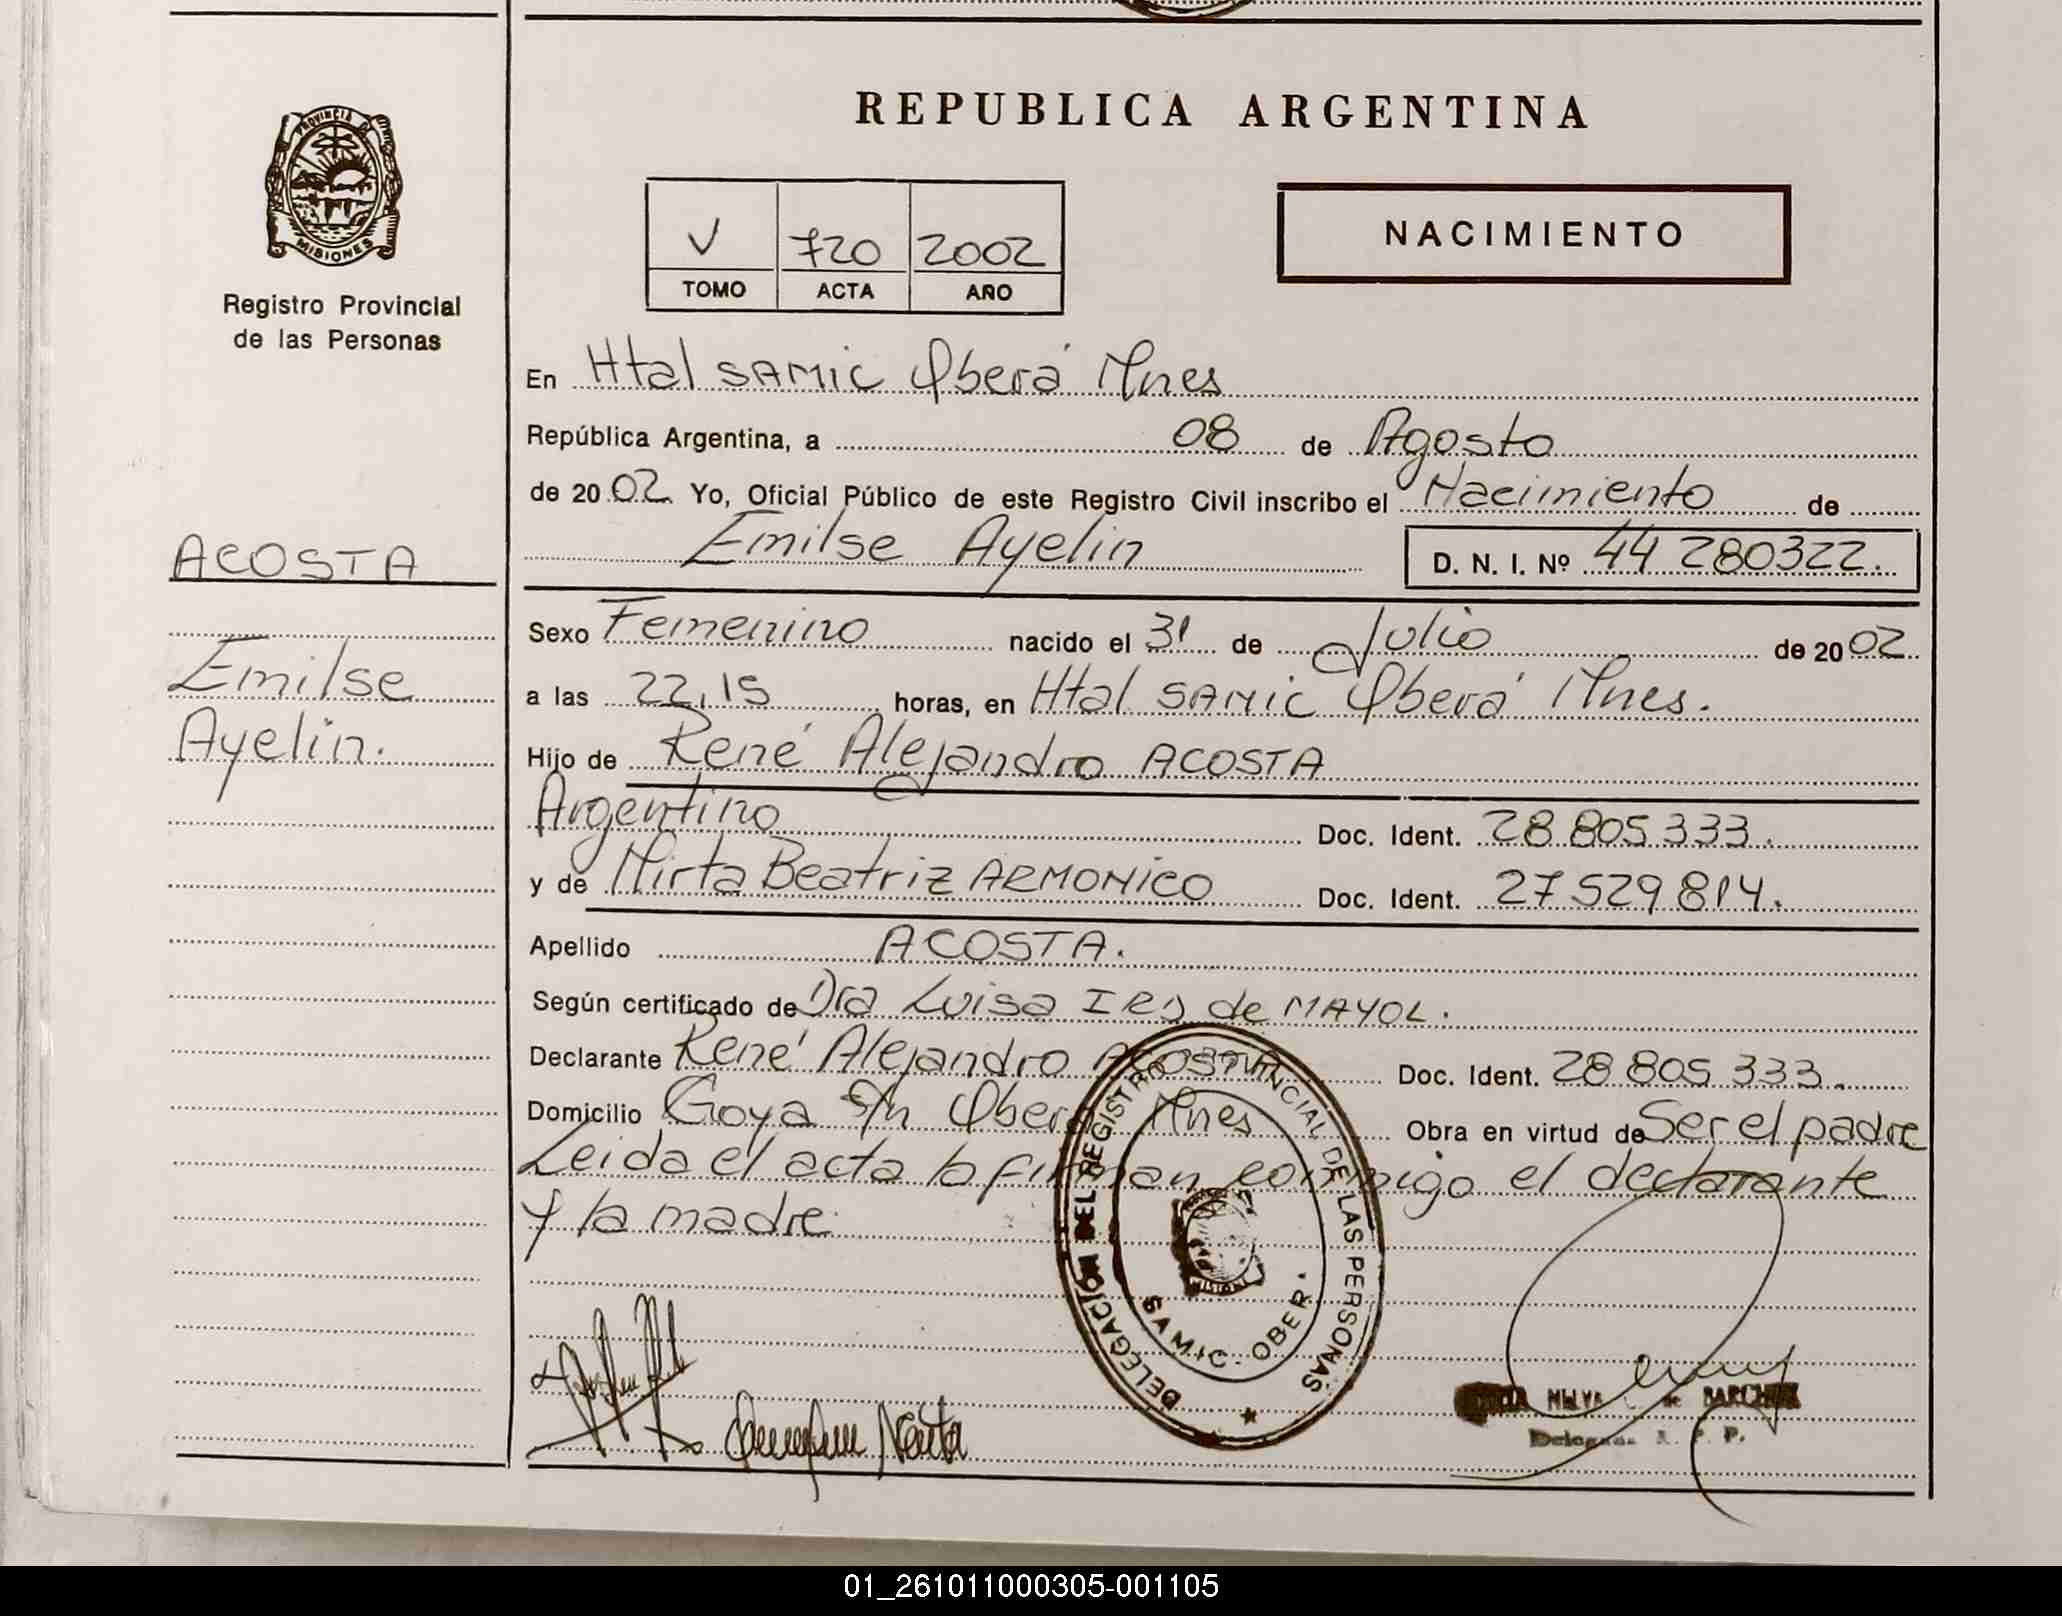 REPUBLICA ARGENTINA
PROVINCIA DE MISIONES
Registro Provincial
de las Personas
V 720 2002
TOMO ACTA AÑO
NACIMIENTO
En Htal SAMIC Oberá Mnes
República Argentina, a 08 de Agosto
de 2002 Yo, Oficial Público de este Registro Civil inscribo el Nacimiento de
Emilse Ayelin D. N. I. Nº 44 280322.
ACOSTA
Emilse
Ayelin.
Sexo Femenino nacido el 31 de Julio de 2002
a las 22,15 horas, en Htal SAMIC Oberá Mnes.
Hijo de René Alejandro ACOSTA
Argentino Doc. Ident. 28 805 333.
y de Mirta Beatriz ARMONICO Doc. Ident. 27 529 814.
Apellido ACOSTA.
Según certificado de Dra Luisa de MAYOL.
Declarante René Alejandro ACOSTA Doc. Ident. 28 805 333.
Domicilio Goya S/n Oberá Mnes Obra en virtud de Ser el padre
Leida el acta la firman conmigo el declarante
y la madre
DELEGACIÓN DEL REGISTRO PROVINCIAL DE LAS PERSONAS
SAMIC - OBER.
01_261011000305-001105